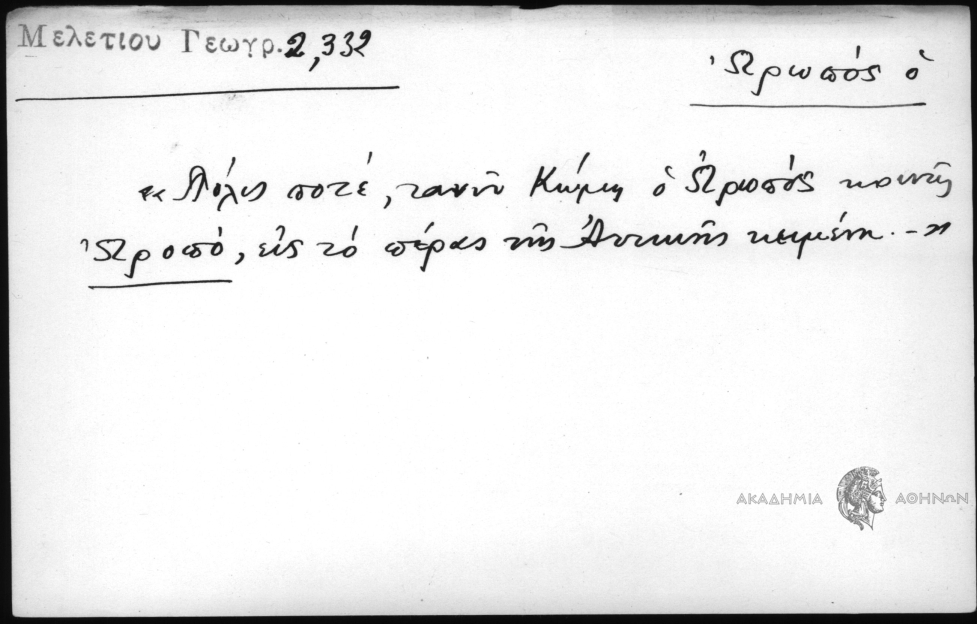 Μελετιου Γεωγρ. 2,332
Ὠρωπός ὁ
«Πόλις ποτέ, τανῦν Κώμη ὁ Ὠρωπός κοινῶς
Ὠροπό, εἰς τό πέρας τῆς Ἀττικῆς κειμένη.-»
ΑΚΑΔΗΜΙΑ ΑΘΗΝΩΝ